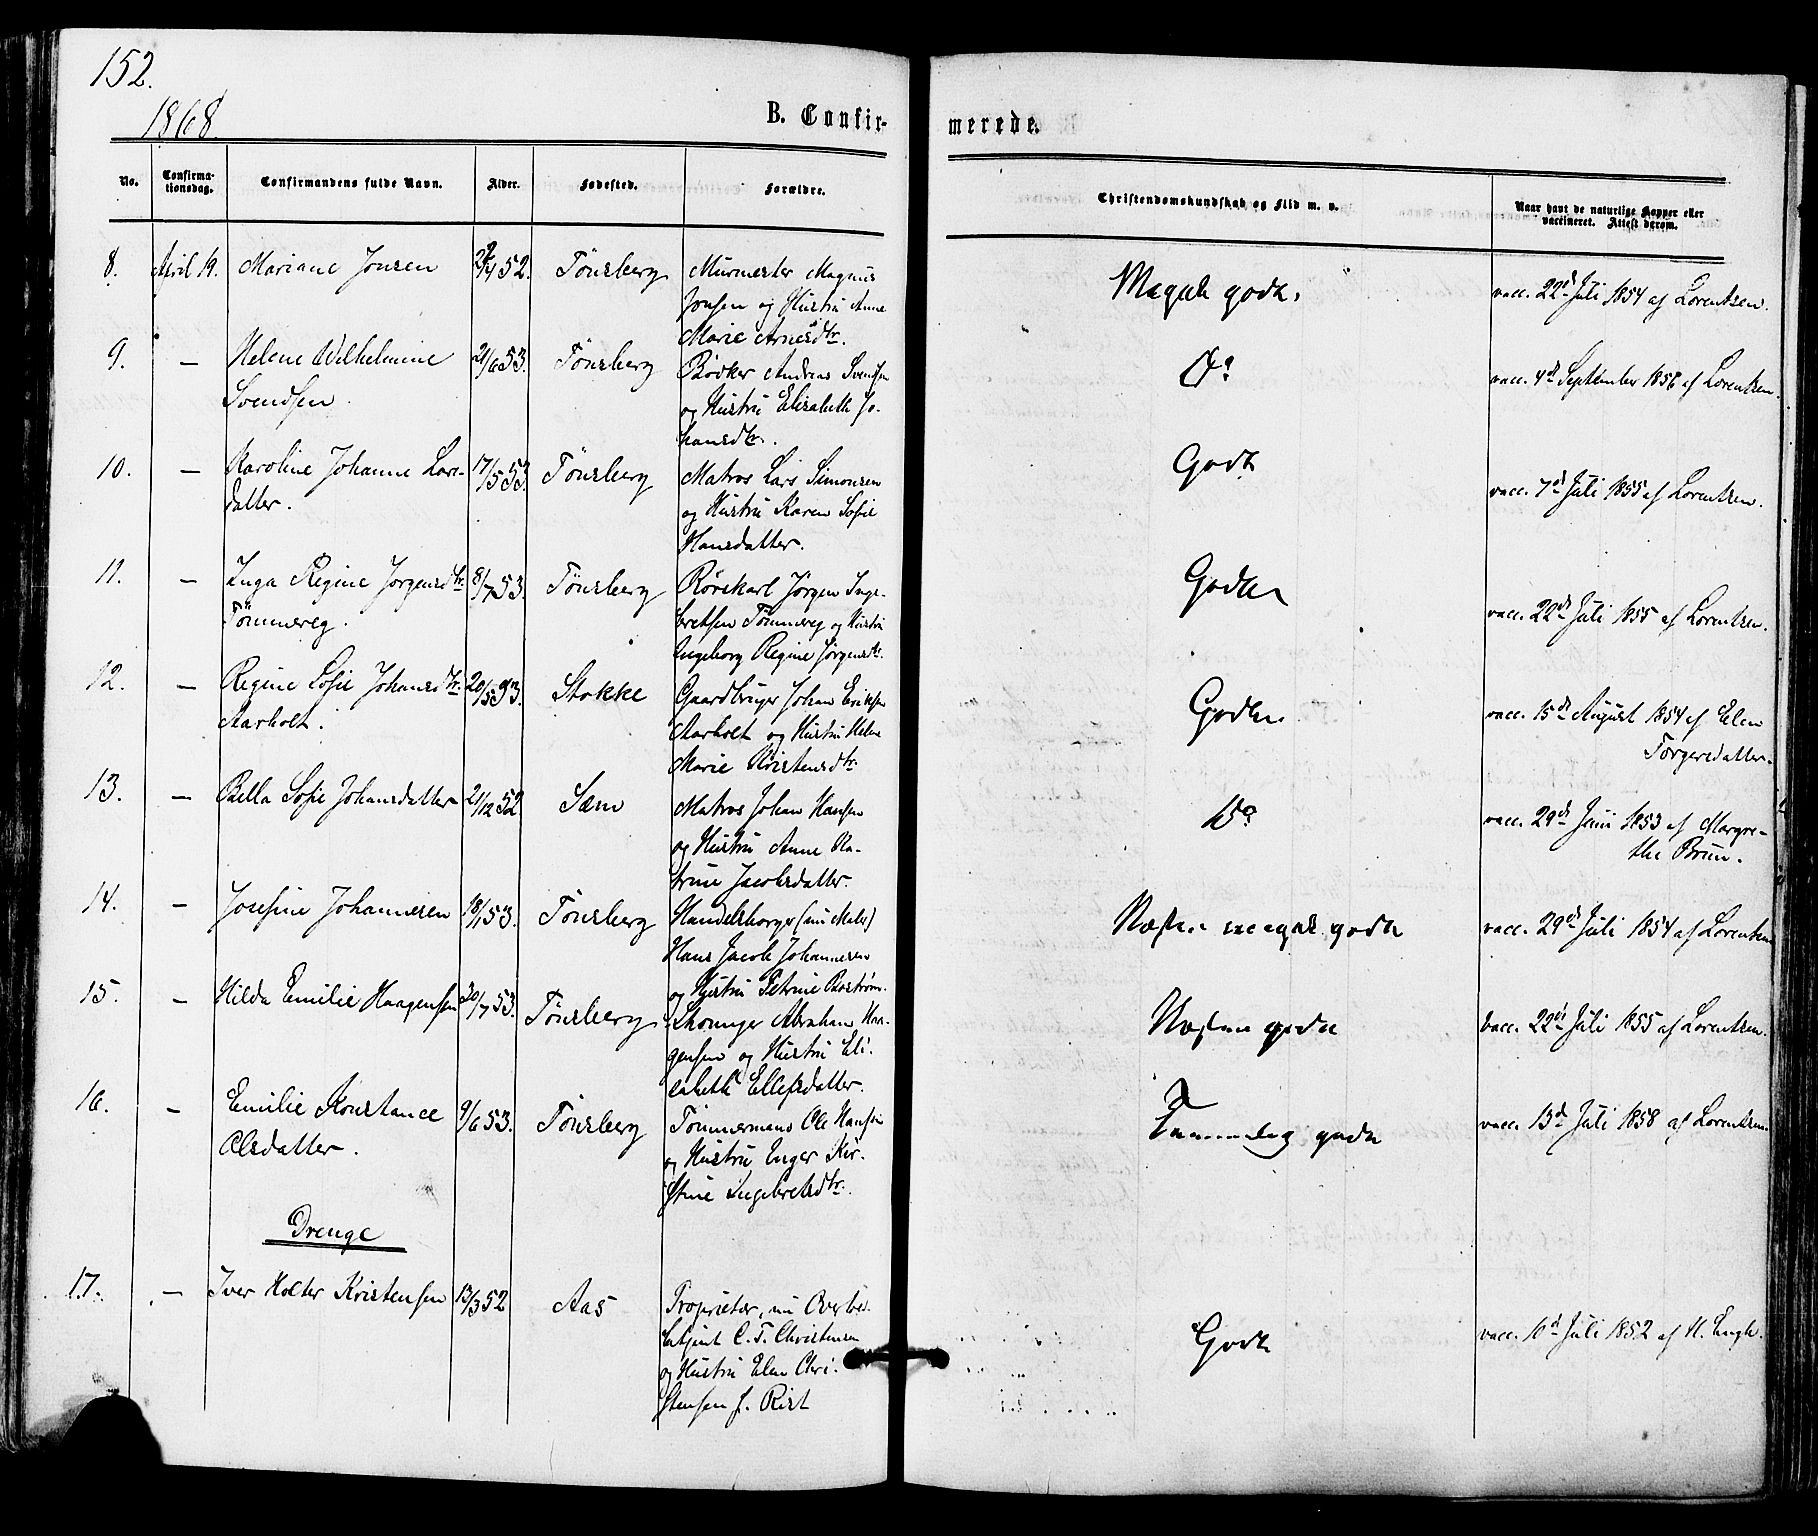 152.
1868
B. Confir-
merede.
No.
Confirma-
tionsdag.
Confirmandens fulde Navn.
Alder.
Fødested.
Forældre.
Christendomskundskab og Flid m. v.
Naar havt de naturlige Kopper eller
vaccineret. Attest derom.
8. April 19. Mariane Jonsen 52. Tönsberg Murmester Magnus
Jonsen og Hustru Anne
Marie Arnesdtr.
Meget godt. vacc. 22de Juli 1854 af Lorentzen.
9. — Helene Wilhelmine
Svendsen.
21/6 53. Tönsberg Bödker Andreas Svendsen
og Hustru Elisabeth Jo-
hansdtr.
Do vacc. 4de September 1856 af Lorentzen.
10. — Karoline Johanne Lars-
datter.
17/5 53. Tönsberg Matros Lars Simonsen
og Hustru Karen Sofie
Hansdatter.
Godt vacc. 7de Juli 1855 af Lorentzen.
11. — Inga Regine Jörgensdtr.
Tömmereg.
8/7 53. Tönsberg Rörskarl Jörgen Inge-
bretsen Tömmereg og Hustru
Ingeborg Regine Jörgensdtr.
Godt vacc. 22de Juli 1855 af Lorentzen.
12. — Regine Sofie Johansdtr.
Aarholt.
20/5 53. Stokke Gaardbruger Johan Eriksen
Aarholt og Hustru Helene
Marie Kristensdtr.
Godt vacc. 15de August 1854 af Elen
Torgersdatter.
13. — Bella Sofie Johansdatter 21/12 52. Sæm Matros Johan Hansen
og Hustru Anne Ka-
trine Jacobsdatter.
Do vacc. 29de Juni 1853 af Margre-
the Brun.
14. — Josefine Johannesen 18/1 53. Tönsberg Handelsborger (nu Maler)
Hans Jacob Johannesen
og Hustru Petrine Boström.
Næsten meget godt vacc. 29de Juli 1854 af Lorentzen
15. — Hilda Emilie Haagensen 30/7 53. Tönsberg Skomager Abraham Haa-
gensen og Hustru Eli-
sabeth Ellefsdatter.
Næsten godt vacc. 22de Juli 1855 af Lorentzen.
16. — Emilie Konstance
Olsdatter.
9/6 53. Tönsberg Tömmermand Ole Hansen
og Hustru Inger Kir-
stine Ingebretsdtr.
Temmelig godt vacc. 13de Juli 1858 af Lorentzen.
Drenge
17. — Iver Holter Kristensen 13/3 52 Aas Proprietær, nu Overbe-
tjent C. F. Christensen
og Hustru Elen Chri-
stensen f. Rist
Godt vacc. 10de Juli 1852 af H. Engh.